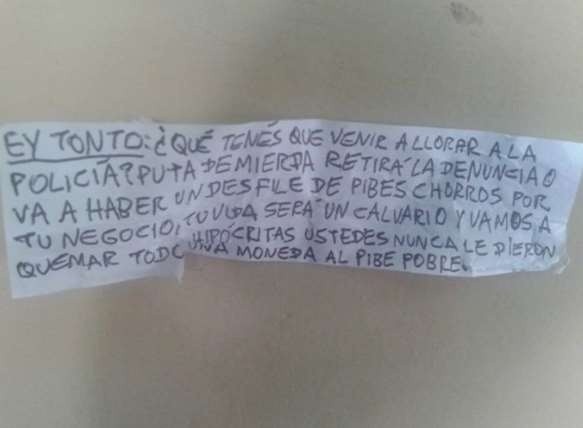 EY TONTO: ¿QUÉ TENÉS QUE VENIR A LLORAR A LA
POLICÍA? PUTA DE MIERDA RETIRÁ LA DENUNCIA O
VA A HABER UN DESFILE DE PIBES CHORROS POR
TU NEGOCIO, TU VIDA SERÁ UN CALVARIO Y VAMOS A
QUEMAR TODO HIPÓCRITAS USTEDES NUNCA LE DIERON
UNA MONEDA AL PIBE POBRE.